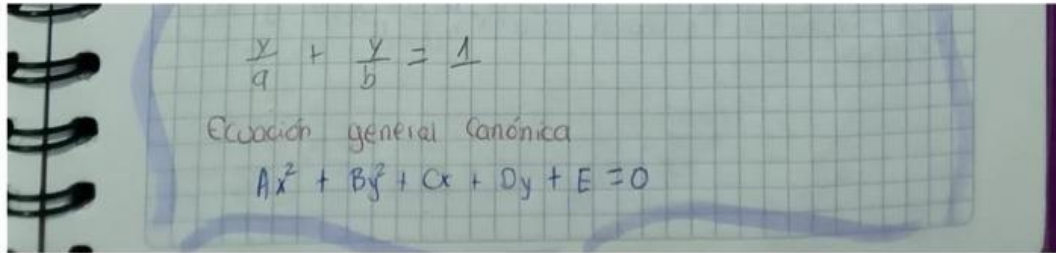 y/a + y/b = 1
Ecuación general Canónica
Ax² + By² + Cx + Dy + E = 0